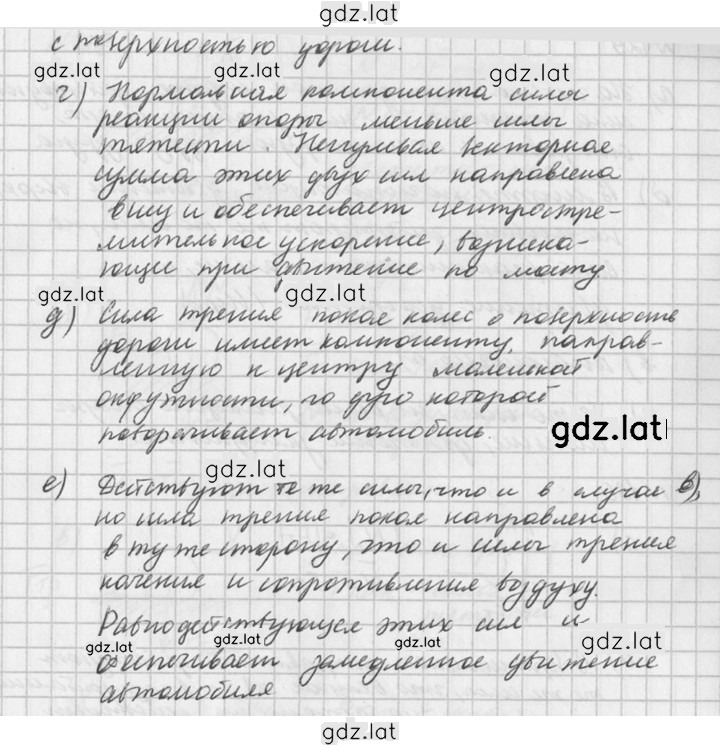 gdz.lat
с поверхностью дороги.
gdz.lat gdz.lat gdz.lat
г) Нормальная компонента силы
реакции опоры меньше силы
тяжести. Ненулевая векторная
сумма этих двух сил направлена
вниз и обеспечивает центростре-
мительное ускорение, возника-
ющее при движение по мосту
gdz.lat gdz.lat
д) Сила трения покоя колес о поверхность
дороги имеет компоненту, направ-
ленную к центру маленькой
окружности, по дуге которой
поворачивает автомобиль.
gdz.lat
gdz.lat
е) Действуют те же силы, что и в случае в),
но сила трения покоя направлена
в ту же сторону, что и силы трения
качения и сопротивления воздуху.
Равнодействующая этих сил и
gdz.lat gdz.lat gdz.lat gdz.lat
обеспечивает замедленное движение
автомобиля
gdz.lat